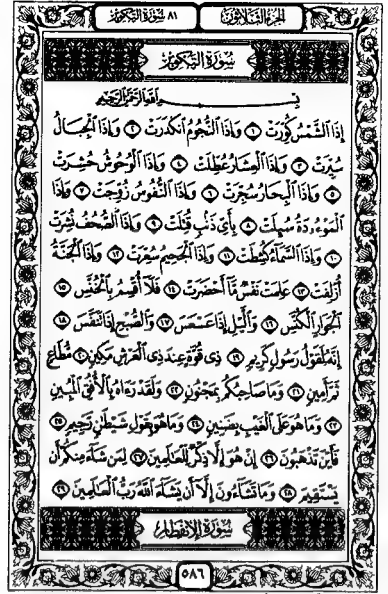 الجزء الثلاثون ٨١ سورة التكوير
سُورَةُ التَّكْوِيرِ
بِسْمِ اللَّهِ الرَّحْمَٰنِ الرَّحِيمِ
إِذَا الشَّمْسُ كُوِّرَتْ ١ وَإِذَا النُّجُومُ انكَدَرَتْ ٢ وَإِذَا الْجِبَالُ
سُيِّرَتْ ٣ وَإِذَا الْعِشَارُ عُطِّلَتْ ٤ وَإِذَا الْوُحُوشُ حُشِرَتْ
٥ وَإِذَا الْبِحَارُ سُجِّرَتْ ٦ وَإِذَا النُّفُوسُ زُوِّجَتْ ٧ وَإِذَا
الْمَوْءُودَةُ سُئِلَتْ ٨ بِأَيِّ ذَنبٍ قُتِلَتْ ٩ وَإِذَا الصُّحُفُ نُشِرَتْ
١٠ وَإِذَا السَّمَاءُ كُشِطَتْ ١١ وَإِذَا الْجَحِيمُ سُعِّرَتْ ١٢ وَإِذَا الْجَنَّةُ
أُزْلِفَتْ ١٣ عَلِمَتْ نَفْسٌ مَّا أَحْضَرَتْ ١٤ فَلَا أُقْسِمُ بِالْخُنَّسِ ١٥
الْجَوَارِ الْكُنَّسِ ١٦ وَاللَّيْلِ إِذَا عَسْعَسَ ١٧ وَالصُّبْحِ إِذَا تَنَفَّسَ ١٨
إِنَّهُ لَقَوْلُ رَسُولٍ كَرِيمٍ ١٩ ذِي قُوَّةٍ عِندَ ذِي الْعَرْشِ مَكِينٍ ٢٠ مُّطَاعٍ
ثَمَّ أَمِينٍ ٢١ وَمَا صَاحِبُكُم بِمَجْنُونٍ ٢٢ وَلَقَدْ رَآهُ بِالْأُفُقِ الْمُبِينِ
٢٣ وَمَا هُوَ عَلَى الْغَيْبِ بِضَنِينٍ ٢٤ وَمَا هُوَ بِقَوْلِ شَيْطَانٍ رَّجِيمٍ ٢٥
فَأَيْنَ تَذْهَبُونَ ٢٦ إِنْ هُوَ إِلَّا ذِكْرٌ لِّلْعَالَمِينَ ٢٧ لِمَن شَاءَ مِنكُمْ أَن
يَسْتَقِيمَ ٢٨ وَمَا تَشَاءُونَ إِلَّا أَن يَشَاءَ اللَّهُ رَبُّ الْعَالَمِينَ ٢٩
سُورَةُ الِانفِطَارِ
٥٨٦